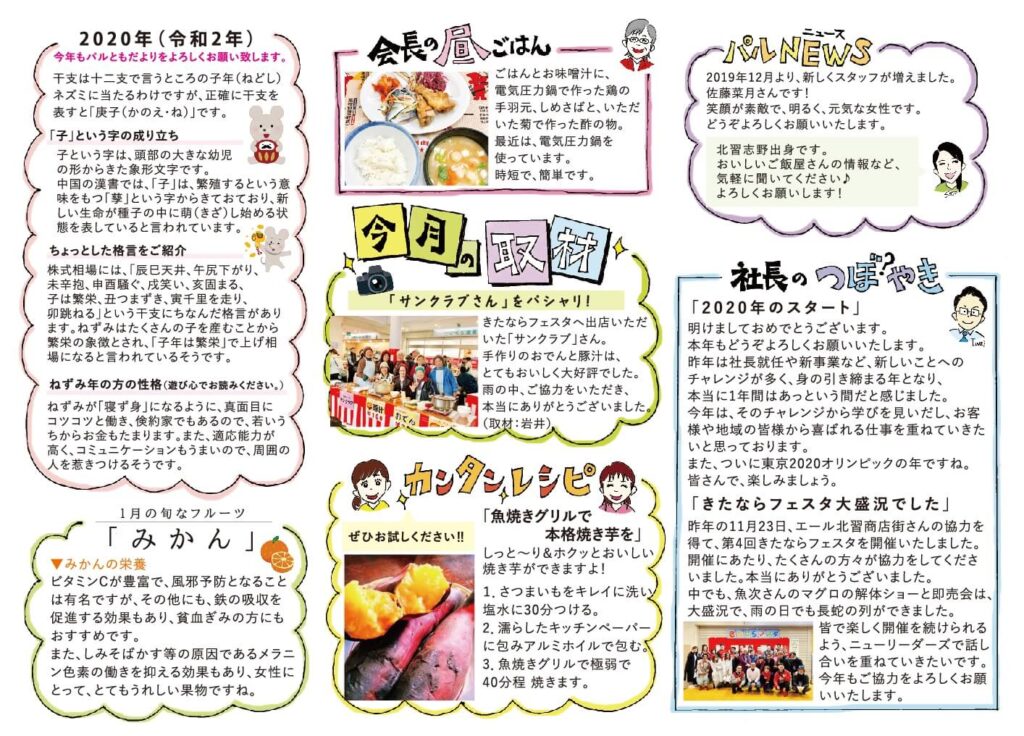 2020年(令和2年)
今年もパルともだよりをよろしくお願い致します。
干支は十二支で言うところの子年(ねどし)
ネズミに当たるわけですが、正確に干支を
表すと「庚子(かのえ・ね)」です。
「子」という字の成り立ち
子という字は、頭部の大きな幼児
の形からきた象形文字です。
中国の漢書では、「子」は、繁殖するという意
味をもつ「孳」という字からきておており、新
しい生命が種子の中に萌(きざ)し始める状
態を表していると言われています。
ちょっとした格言をご紹介
株式相場には、「辰巳天井、午尻下がり、
未辛抱、申酉騒ぐ、戌笑い、亥固まる、
子は繁栄、丑つまずき、寅千里を走り、
卯跳ねる」という干支にちなんだ格言があり
ます。ねずみはたくさんの子を産むことから
繁栄の象徴とされ、「子年は繁栄」で上げ相
場になると言われているそうです。
ねずみ年の方の性格(遊び心でお読みください。)
ねずみが「寝ず身」になるように、真面目に
コツコツと働き、倹約家でもあるので、若いう
ちからお金もたまります。また、適応能力が
高く、コミュニケーションもうまいので、周囲の
人を惹きつけるそうです。
1月の旬なフルーツ
「みかん」
▼みかんの栄養
ビタミンCが豊富で、風邪予防となること
は有名ですが、その他にも、鉄の吸収を
促進する効果もあり、貧血ぎみの方にも
おすすめです。
また、しみそばかす等の原因であるメラニ
ン色素の働きを抑える効果もあり、女性に
とって、とてもうれしい果物ですね。
会長の昼ごはん
ごはんとお味噌汁に、
電気圧力鍋で作った鶏の
手羽元、しめさばと、いただ
いた菊で作った酢の物。
最近は、電気圧力鍋を
使っています。
時短で、簡単です。
今月の取材
「サンクラブさん」をパシャリ!
きたならフェスタへ出店いただ
いた「サンクラブ」さん。
手作りのおでんと豚汁は、
とてもおいしく大好評でした。
雨の中、ご協力をいただき、
本当にありがとうございました。
(取材:岩井)
カンタンレシピ
ぜひお試しください!!
「魚焼きグリルで
本格焼き芋を」
しっと〜り&ホクッとおいしい
焼き芋ができますよ!
1. さつまいもをキレイに洗い
塩水に30分つける。
2. 濡らしたキッチンペーパー
に包みアルミホイルで包む。
3. 魚焼きグリルで極弱で
40分程 焼きます。
ニュース
パルNEWS
2019年12月より、新しくスタッフが増えました。
佐藤菜月さんです!
笑顔が素敵で、明るく、元気な女性です。
どうぞよろしくお願いいたします。
北習志野出身です。
おいしいご飯屋さんの情報など、
気軽に聞いてください♪
よろしくお願いします!
社長のつぼ?やき
「2020年のスタート」
明けましておめでとうございます。
本年もどうぞよろしくお願いいたします。
昨年は社長就任や新事業など、新しいことへの
チャレンジが多く、身の引き締まる年となり、
本当に1年間はあっという間だと感じました。
今年は、そのチャレンジから学びを見いだし、お客
様や地域の皆様から喜ばれる仕事を重ねていきた
いと思っております。
また、ついに東京2020オリンピックの年ですね。
皆さんで、楽しみましょう。
「きたならフェスタ大盛況でした」
昨年の11月23日、エール北習商店街さんの協力を
得て、第4回きたならフェスタを開催いたしました。
開催にあたり、たくさんの方々が協力をしてくださ
いました。本当にありがとうございました。
中でも、魚次さんのマグロの解体ショーと即売会は、
大盛況で、雨の日でも長蛇の列ができました。
皆で楽しく開催を続けられる
よう、ニューリーダーズで話し
合いを重ねていきたいです。
今年もご協力をよろしくお願
いいたします。